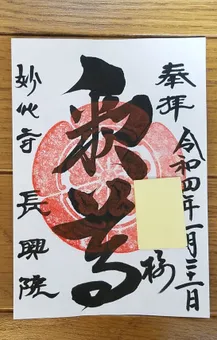 奉拝
令和四年一月三十一日
釈尊
妙心寺 長興院